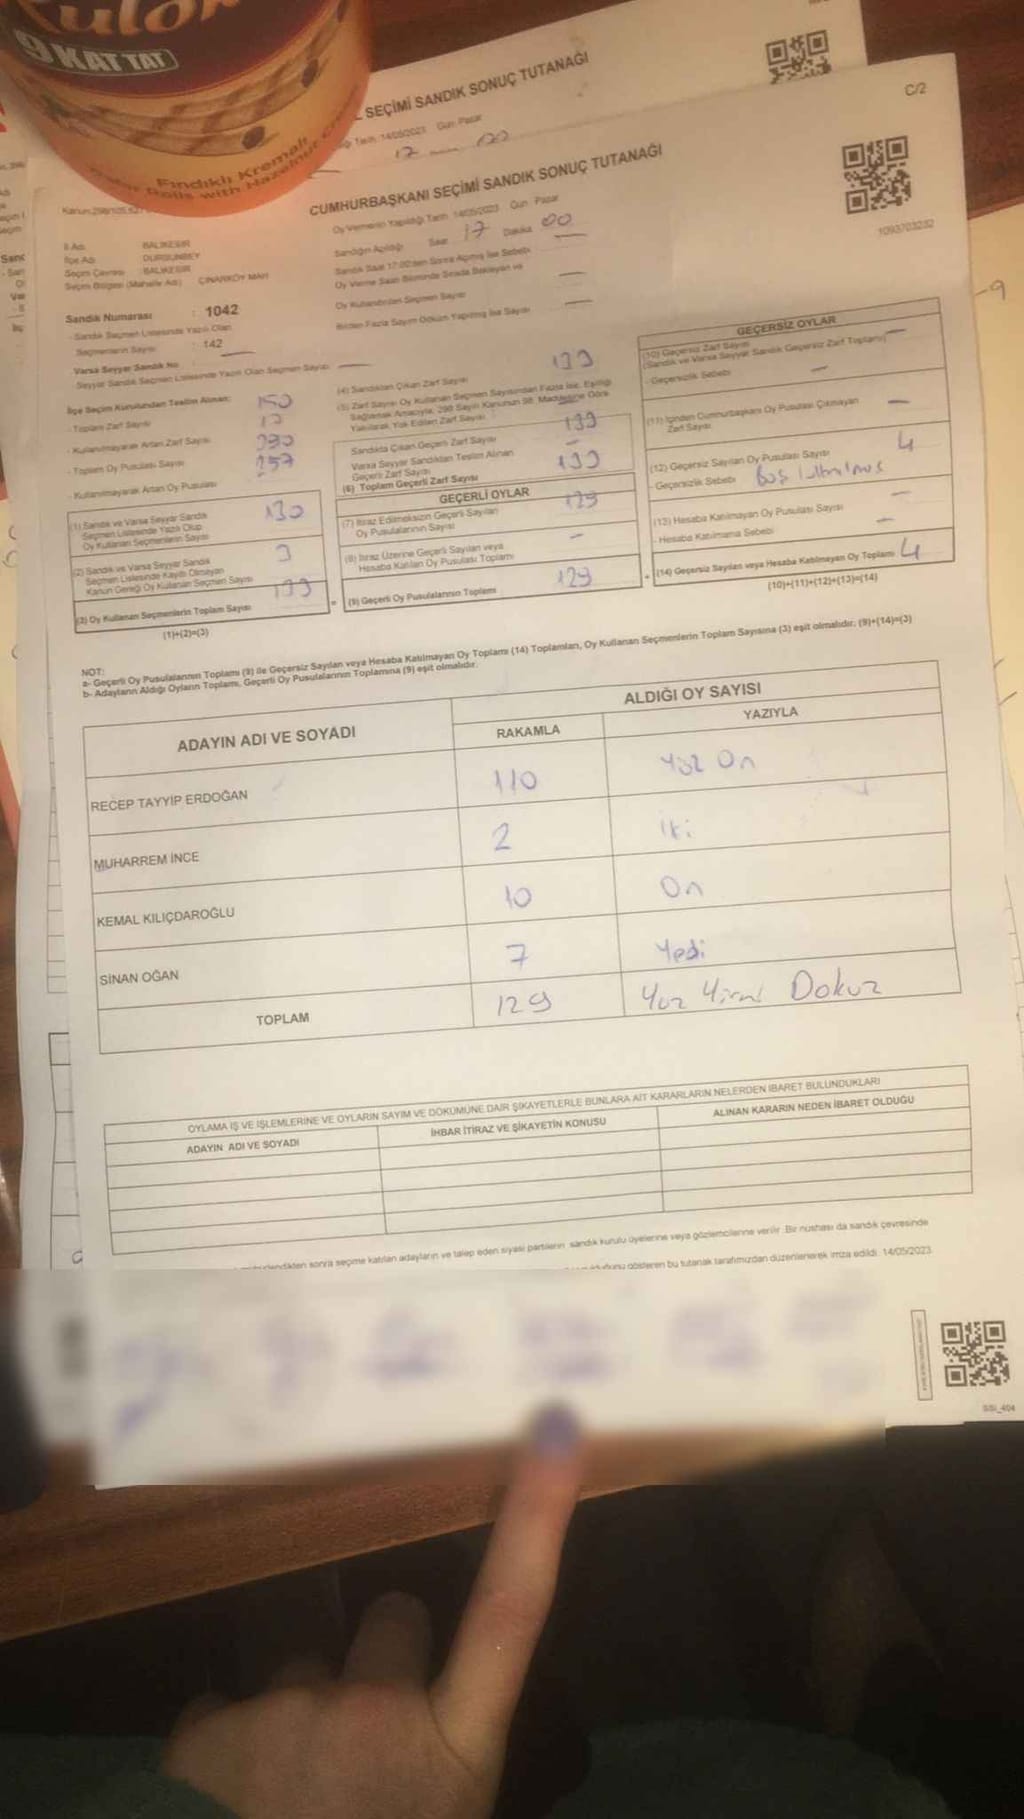 9 KAT TAT
Fındıklı Kremalı
Rolls with Hazelnut
SEÇİMİ SANDIK SONUÇ TUTANAĞI
Tarih 14/05/2023 Gün Pazar
17 00
C/2
CUMHURBAŞKANI SEÇİMİ SANDIK SONUÇ TUTANAĞI
1093703232
Oy Vermenin Yapıldığı Tarih 14/05/2023 Gün Pazar
Sandığın Açıldığı Saat 17 Dakika 00
Sandık Saat 17:00'den Sonra Açılmış İse Sebebi —
Oy Verme Saati Bitiminde Sırada Bekleyen ve
Oy Kullandırılan Seçmen Sayısı —
Birden Fazla Sayım Döküm Yapılmış İse Sayısı —
İl Adı BALIKESİR
İlçe Adı DURSUNBEY
Seçim Çevresi : BALIKESİR
Seçim Bölgesi (Mahalle Adı) ÇINARKÖY MAH
Sandık Numarası : 1042
- Sandık Seçmen Listesinde Yazılı Olan
Seçmenlerin Sayısı : 142
Varsa Seyyar Sandık No —
Seyyar Sandık Seçmen Listesinde Yazılı Olan Seçmen Sayısı —
İlçe Seçim Kurulundan Teslim Alınan:
- Toplam Zarf Sayısı 150
- Kullanılmayarak Artan Zarf Sayısı
- Toplam Oy Pusulası Sayısı
- Kullanılmayarak Artan Oy Pusulası
(1) Sandık ve Varsa Seyyar Sandık
Seçmen Listesinde Yazılı Olup
Oy Kullanan Seçmenlerin Sayısı 130
(2) Sandık ve Varsa Seyyar Sandık
Seçmen Listesinde Kayıtlı Olmayan
Kanun Gereği Oy Kullanan Seçmen Sayısı 3
(3) Oy Kullanan Seçmenlerin Toplam Sayısı 133
(1)+(2)=(3)
(4) Sandıktan Çıkan Zarf Sayısı 133
(5) Zarf Sayısı Oy Kullanan Seçmen Sayısından Fazla İse, Eşitliği
Sağlamak Amacıyla, 298 Sayılı Kanunun 98. Maddesine Göre
Yakılarak Yok Edilen Zarf Sayısı —
Sandıkta Çıkan Geçerli Zarf Sayısı 133
Varsa Seyyar Sandıktan Teslim Alınan
Geçerli Zarf Sayısı —
(6) Toplam Geçerli Zarf Sayısı 133
GEÇERLİ OYLAR
(7) İtiraz Edilmeksizin Geçerli Sayılan
Oy Pusulalarının Sayısı 129
(8) İtiraz Üzerine Geçerli Sayılan veya
Hesaba Katılan Oy Pusulası Toplamı —
(9) Geçerli Oy Pusulalarının Toplamı 129
GEÇERSİZ OYLAR
(10) Geçersiz Zarf Sayısı
(Sandık ve Varsa Seyyar Sandık Geçersiz Zarf Toplamı) —
- Geçersizlik Sebebi —
(11) İçinden Cumhurbaşkanı Oy Pusulası Çıkmayan
Zarf Sayısı —
(12) Geçersiz Sayılan Oy Pusulası Sayısı 4
- Geçersizlik Sebebi Boş
(13) Hesaba Katılmayan Oy Pusulası Sayısı —
- Hesaba Katılmama Sebebi —
(14) Geçersiz Sayılan veya Hesaba Katılmayan Oy Toplamı 4
(10)+(11)+(12)+(13)=(14)
NOT:
a- Geçerli Oy Pusulalarının Toplamı (9) ile Geçersiz Sayılan veya Hesaba Katılmayan Oy Toplamı (14) Toplamları, Oy Kullanan Seçmenlerin Toplam Sayısına (3) eşit olmalıdır. (9)+(14)=(3)
b- Adayların Aldığı Oyların Toplamı, Geçerli Oy Pusulalarının Toplamına (9) eşit olmalıdır.
ADAYIN ADI VE SOYADI ALDIĞI OY SAYISI
RAKAMLA YAZIYLA
RECEP TAYYİP ERDOĞAN 110 Yüz On
MUHARREM İNCE 2 İki
KEMAL KILIÇDAROĞLU 10 On
SİNAN OĞAN 7 Yedi
TOPLAM 129 Yüz Yirmi Dokuz
OYLAMA İŞ VE İŞLEMLERİNE VE OYLARIN SAYIM VE DÖKÜMÜNE DAİR ŞİKAYETLERLE BUNLARA AİT KARARLARIN NELERDEN İBARET BULUNDUKLARI
ADAYIN ADI VE SOYADI İHBAR İTİRAZ VE ŞİKAYETİN KONUSU ALINAN KARARIN NEDEN İBARET OLDUĞU
sonra seçime katılan adayların ve talep eden siyasi partilerin sandık kurulu üyelerine veya gözlemcilerine verilir. Bir nüshası da sandık çevresinde
gösteren bu tutanak tarafımızdan düzenlenerek imza edildi. 14/05/2023